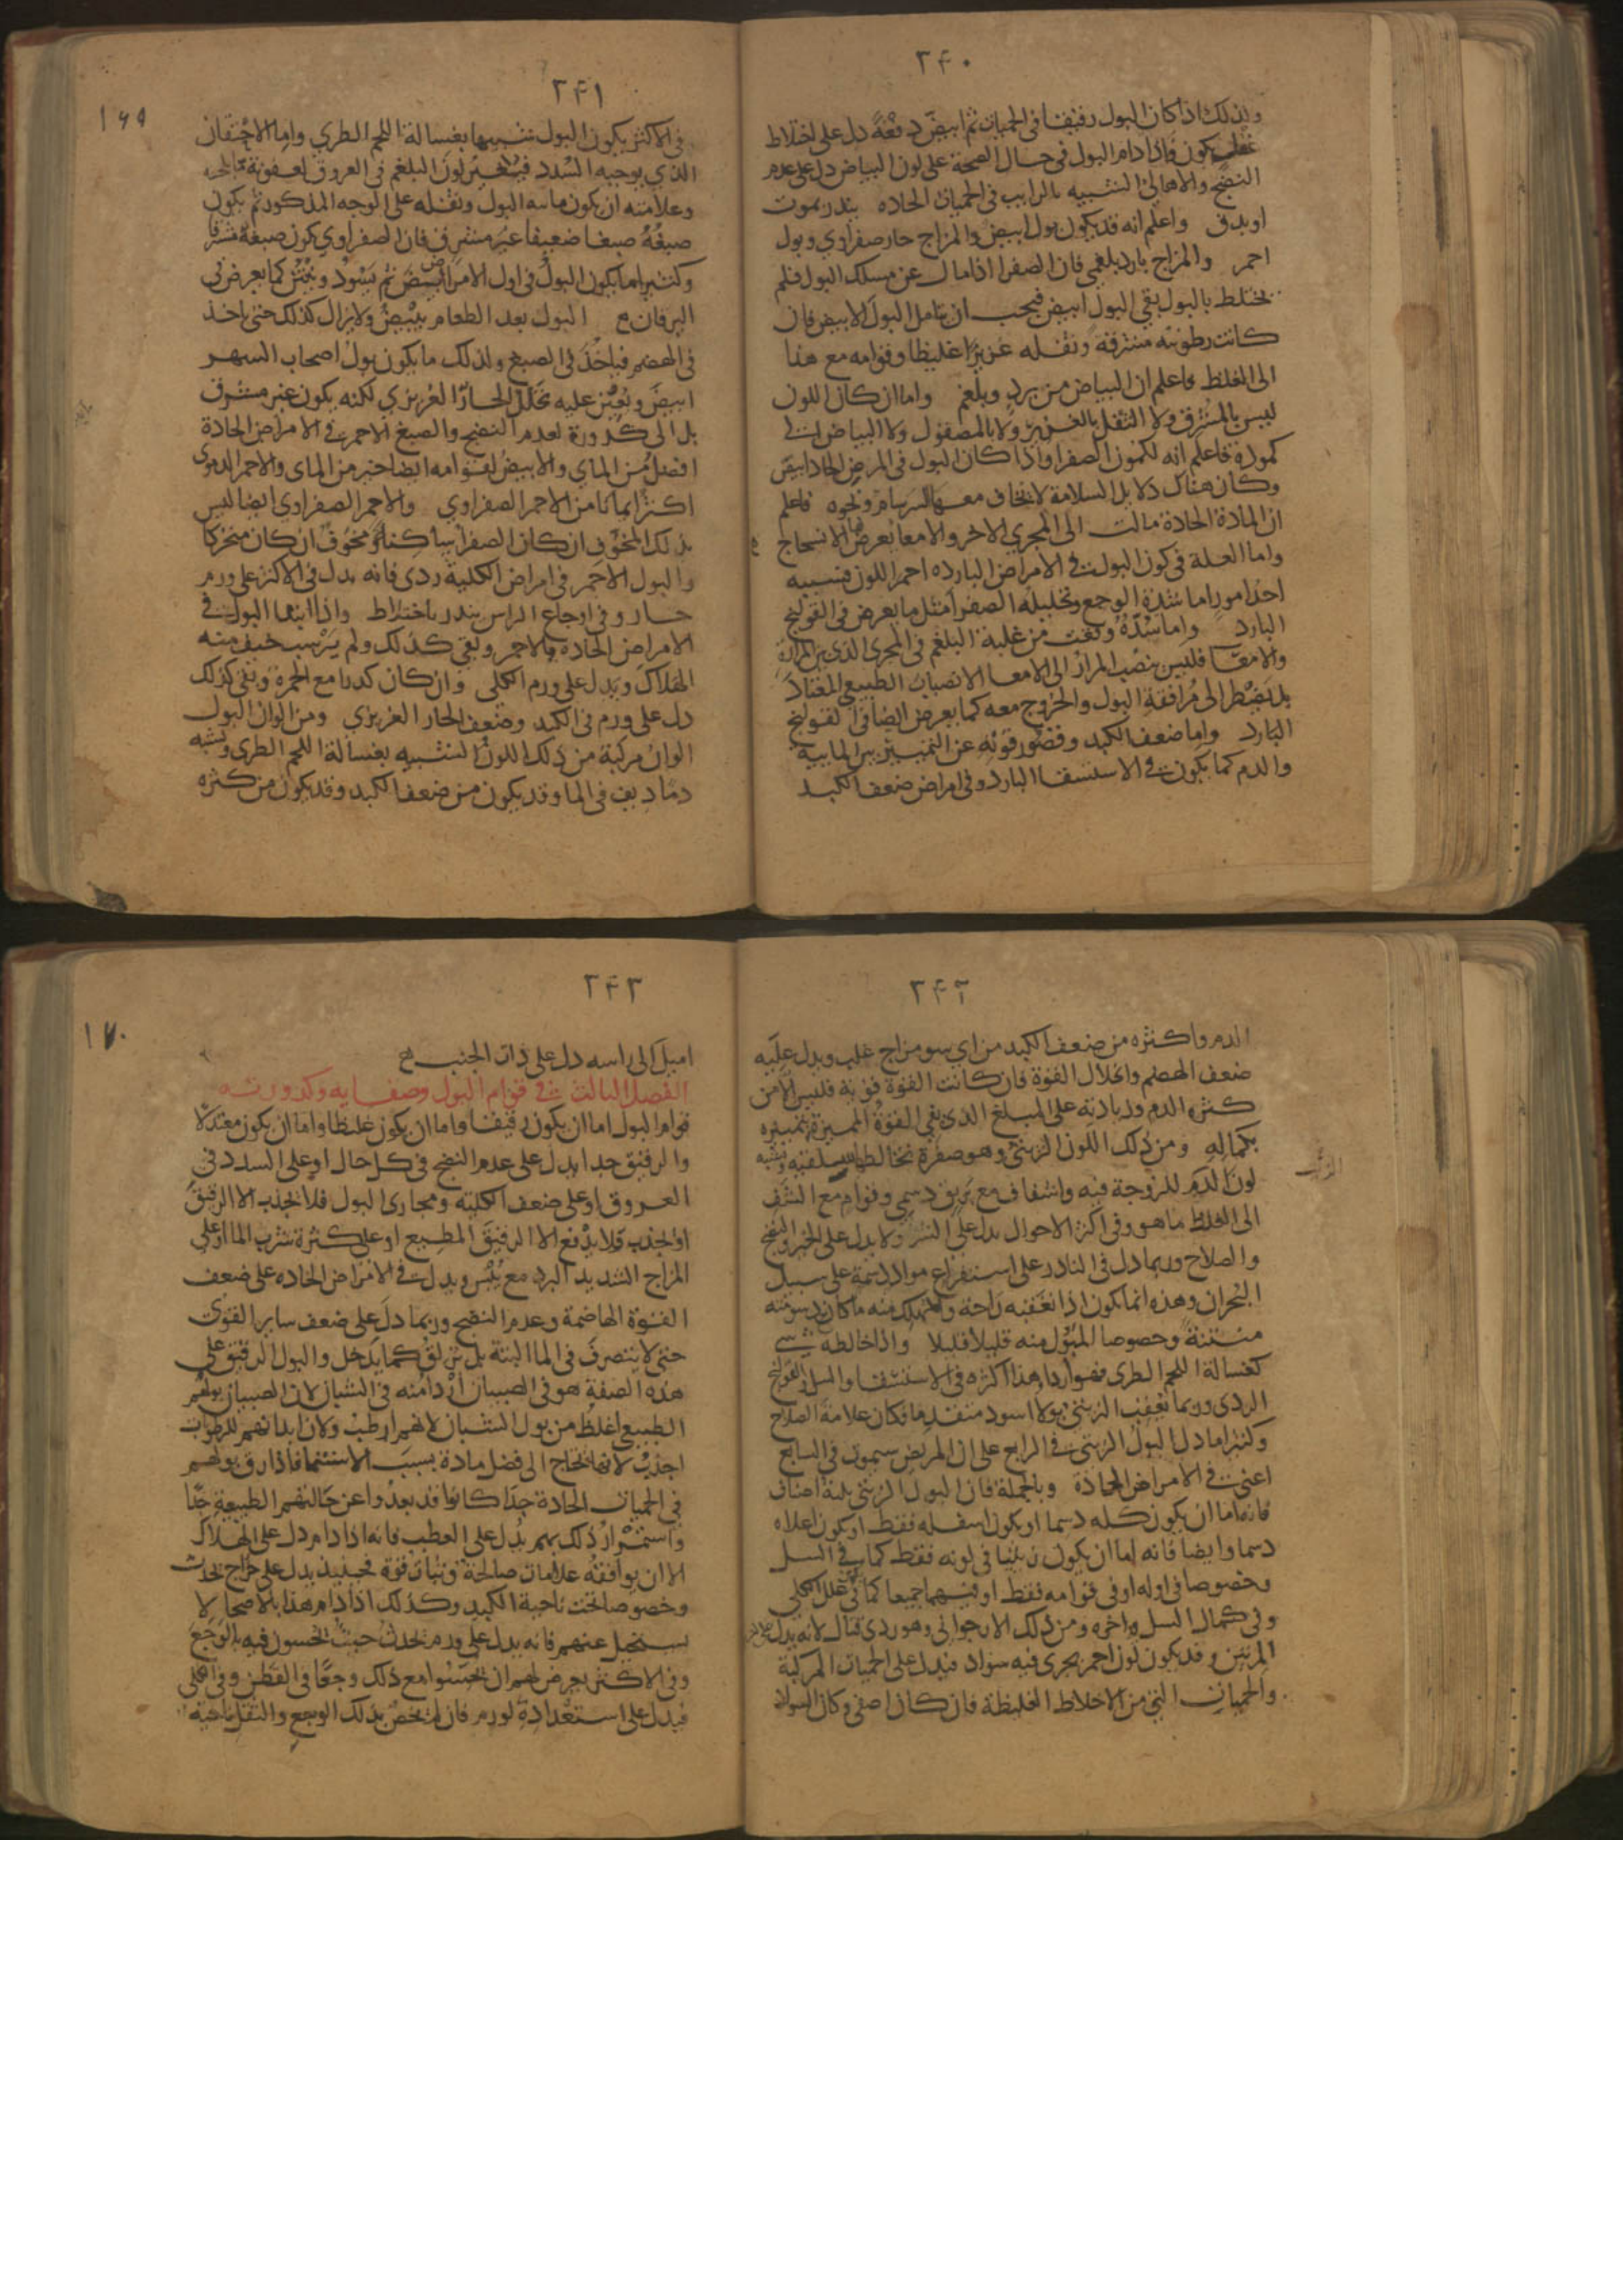 ٢۴٠
ولذلك اذا كان البول رقيقا فى الحميات ثم ابيض دفعة دل على اختلاط
عقل يكون فاذا دام البول فى حال الصحة على لون البياض دل على عدم
النضج والاهالى الشبيه بالزايب فى الحميات الحاده ينذر بموت
او بدق واعلم انه قد يكون بول ابيض والمزاج حار صفراوي وبول
احمر والمزاج بارد بلغمي فان الصفرا اذا مال عن مسلك البول فلم
يختلط بالبول بقي البول ابيض فيجب ان يتامل البول الابيض فان
كانت رطوبته مشرقة وثفله غزيرا غليظا وقوامه مع هذا
الى الغلظ فاعلم ان البياض من برد وبلغم واما ان كان اللون
ليس بالمشرق ولا الثفل بالغزير ولا بالمصقول ولا البياض الى
كمودة فاعلم انه لكمون الصفرا واذا كان البول فى المرض الحاد ابيض
وكان هناك دلايل السلامة لا يخاف معها السرسام ونحوه فاعلم
ان المادة الحادة مالت الى المجري الاخر والامعا يعرض الانسحاج
واما العلة فى كون البول فى الامراض البارده احمر اللون فسببه
احد امور اما شدة الوجع وتحليله الصفرا مثل ما يعرض فى القولنج
البارد واما سدة وقعت من غلبة البلغم فى المجرى الذي بين المرارة
والامعا فليس ينصب المرار الى الامعا الانصباب الطبيعي المعتاد
بل يضطر الى مرافقة البول والخروج معه كما يعرض ايضا فى القولنج
البارد واما ضعف الكبد وقصور قوته عن التمييز بين المايية
والدم كما يكون فى الاستسقا البارد وفى امراض ضعف الكبد
٢۴١
١۶٩
فى الاكثر يكون البول شبيها بغسالة اللحم الطري واما الاحتقان
الذي يوجبه السدد فيتغير لون البلغم فى العروق لعفونة
وعلامته ان يكون مايية البول وثفله على الوجه المذكور ثم يكون
صبغه صبغا ضعيفا غير مشرق فان الصفراوي يكون صبغه مشرقا
وكثيرا ما يكون البول فى اول الامر ابيض ثم يسود وينتن كما يعرض فى
اليرقان البول بعد الطعام يبيض ولا يزال كذلك حتى ياخذ
فى الهضم فياخذ فى الصبغ ولذلك ما يكون بول اصحاب السهر
ابيض ويعين عليه تحلل الحار الغريزي لكنه يكون غير مشرق
بل الى كدورة لعدم النضج والصبغ الاحمر فى الامراض الحادة
افضل من المائي والابيض لقوامه ايضا خير من المائي والاحمر الدموي
اكثر امانا من الاحمر الصفراوي والاحمر الصفراوي ايضا ليس
بذلك المخوف ان كان الصفرا ساكنا ومخوف ان كان متحركا
والبول الاحمر فى امراض الكلية ردى فانه يدل فى الاكثر على ورم
حار وفى اوجاع الراس ينذر باختلاط واذا ابتدا البول فى
الامراض الحادة بالاحمر وبقي كذلك ولم يرسب خيف منه
الهلاك ويدل على ورم الكلى وان كان كدرا مع الحمرة وبقى كذلك
دل على ورم فى الكبد وضعف الحار الغريزي ومن الوان البول
الوان مركبة من ذلك اللون الشبيه بغسالة اللحم الطرى ويشبه
دما ديف فى الما وقد يكون من ضعف الكبد وقد يكون من كثره
٢۴٢
الدم واكثره من ضعف الكبد من اي سو مزاج غلب ويدل عليه
ضعف الهضم وانحلال القوة فان كانت القوة قوية فليس الا من
كثره الدم وزيادته على المبلغ الذي يفي القوة المميزة بتمييزه
بكماله ومن ذلك اللون الزيتي وهو صفرة تخالطها سلقيه ويشبه
لون الدم للزوجة فيه واشفاف مع بريق دسمي وقوام مع الشف
الى الغلظ ما هو وفى اكثر الاحوال يدل على الشر ولا يدل على الخير والنضج
والصلاح وربما دل فى النادر على استفراغ مواد دسمة على سبيل
البحران وهذه انما يكون اذا تعقبه راحة والمهلك منه ما كان دسومته
منتنة وخصوصا المبول منه قليلا قليلا واذا خالطه شي
كغسالة اللحم الطرى فهو اردا وهذا اكثره فى الاستسقا والسل والقولنج
الردى وربما تعقب الزيتي بولا اسود متقدما فكان علامة الصلاح
وكثيرا ما دل البول الزيتي فى الرابع على ان المريض سيموت فى السابع
اعنى فى الامراض الحادة وبالجملة فان البول الزيتي ثلثة اصناف
فانه اما ان يكون كله دسما او يكون اسفله فقط او يكون اعلاه
دسما وايضا فانه اما ان يكون زيتيا فى لونه فقط كما فى السل
وخصوصا فى اوله او فى قوامه فقط او فيهما جميعا كما فى علل الكلى
وفى كمال السل واخره ومن ذلك الارجوانى وهو ردى قتال لانه يدل
المرتين وقد يكون لون احمر يجرى فيه سواد فيدل على الحميات المركبة
والحميات التي من الاخلاط الغليظة فان كان اصفى وكان السواد
٢۴٣
١٧٠
اميل الى راسه دل على ذات الجنب
الفصل الثالث فى قوام البول وصفايه وكدورته
قوام البول اما ان يكون رقيقا واما ان يكون غليظا واما ان يكون معتدلا
والرقيق جدا يدل على عدم النضج فى كل حال او على السدد فى
العروق او على ضعف الكلية ومجارى البول فلا يجذب الا الرقيق
او يجذب ولا يدفع الا الرقيق المطيع او على كثرة شرب الما او على
المزاج الشديد البرد مع يبس ويدل فى الامراض الحاده على ضعف
القوة الهاضمة وعدم النضج وربما دل على ضعف ساير القوى
حتى لا يتصرف فى الما البتة بل يزلق كما يدخل والبول الرقيق على
هذه الصفة هو فى الصبيان اردا منه فى الشبان لان الصبيان بولهم
الطبيعي اغلظ من بول الشبان لانهم ارطب ولان ابدانهم للرطوبات
اجذب لانها تحتاج الى فضل مادة بسبب الاستنما فاذا رق بولهم
فى الحميات الحادة جدا كانوا قد بعدوا عن حالتهم الطبيعية جدا
واستمرار ذلك بهم يدل على العطب فانه اذا دام دل على الهلاك
الا ان يوافقه علامات صالحة وثبات قوة فحينيذ يدل على خراج يحدث
وخصوصا تحت ناحية الكبد وكذلك اذا دام هذا بالاصحا لا
يستحيل عنهم فانه يدل على ورم يحدث حيث يحسون فيه بالوجع
وفى الاكثر يعرض لهم ان يحسوا مع ذلك وجعا فى القطن وفى الكلى
فيدل على استعداد لورم فان لم يخص بذلك الوجع والثقل ناحية